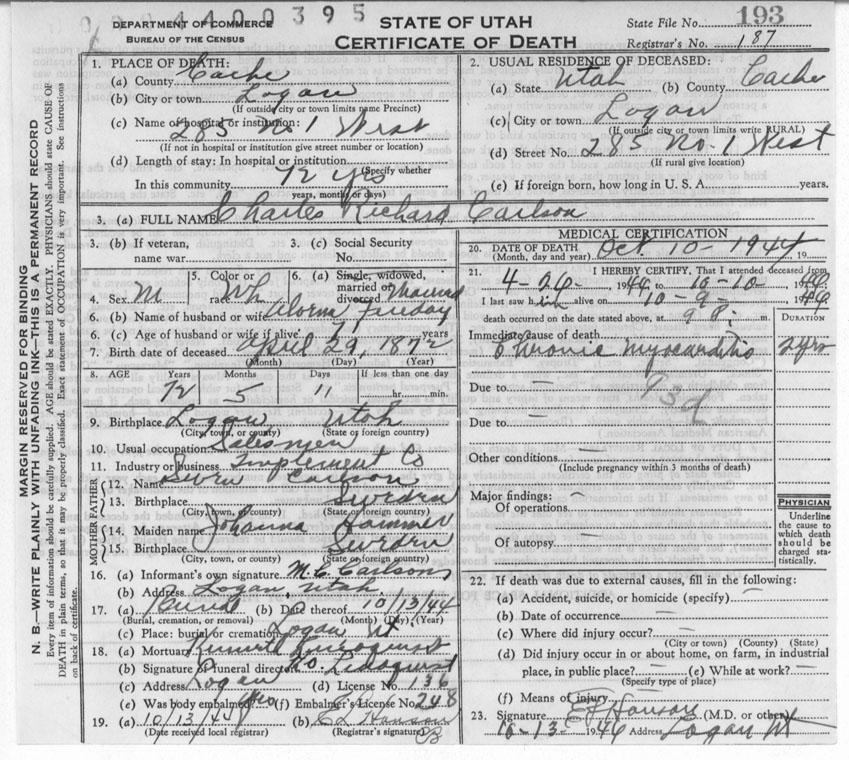 4400395
DEPARTMENT OF COMMERCE
BUREAU OF THE CENSUS
STATE OF UTAH
CERTIFICATE OF DEATH
State File No. 193
Registrar's No. 187
MARGIN RESERVED FOR BINDING
N. B.—WRITE PLAINLY WITH UNFADING INK—THIS IS A PERMANENT RECORD
Every item of information should be carefully supplied. AGE should be stated EXACTLY. PHYSICIANS should state CAUSE OF
DEATH in plain terms, so that it may be properly classified. Exact statement of OCCUPATION is very important. See instructions
on back of certificate.
1. PLACE OF DEATH:
(a) County Cache
(b) City or town Logan
(If outside city or town limits name Precinct)
(c) Name of hospital or institution:
285 No 1 West
(If not in hospital or institution give street number or location)
(d) Length of stay: In hospital or institution
(Specify whether
In this community 72 yrs
years, months or days)
2. USUAL RESIDENCE OF DECEASED:
(a) State Utah (b) County Cache
(c) City or town Logan
(If outside city or town limits write RURAL)
(d) Street No. 285 No. 1 West
(If rural give location)
(e) If foreign born, how long in U. S. A. years.
3. (a) FULL NAME Charles Richard Carlson
3. (b) If veteran, name war
3. (c) Social Security No.
4. Sex M
5. Color or race Wh
6. (a) Single, widowed, married or divorced Married
6. (b) Name of husband or wife
6. (c) Age of husband or wife if alive 71 years
7. Birth date of deceased April 29, 1872
(Month) (Day) (Year)
8. AGE Years Months Days If less than one day
72 5 11 hr. min.
9. Birthplace Logan Utah
(City, town, or county) (State or foreign country)
10. Usual occupation Salesmen
11. Industry or business Implement Co
FATHER
12. Name Carlson
13. Birthplace Sweden
(City, town, or county) (State or foreign country)
MOTHER
14. Maiden name Johanna Hammer
15. Birthplace Sweden
(City, town, or county) (State or foreign country)
16. (a) Informant's own signature M. C. Carlson
(b) Address Logan, Utah
17. (a) Burial (b) Date thereof 10/13/44
(Burial, cremation, or removal) (Month) (Day) (Year)
(c) Place: burial or cremation Logan Ut
18. (a) Mortuary Lindquist
(b) Signature of funeral director Lindquist
(c) Address Logan (d) License No. 136
(e) Was body embalmed? Yes (f) Embalmer's License No. 248
19. (a) 10/13/44 (b) Hanson
(Date received local registrar) (Registrar's signature)
MEDICAL CERTIFICATION
20. DATE OF DEATH Oct. 10-1944, 19
(Month, day and year)
21. I HEREBY CERTIFY, That I attended deceased from
4-26-, 19 to 10-10-, 19
I last saw him alive on 10-9-, 19
death occurred on the date stated above, at 9 P. m.
DURATION
Immediate cause of death
Chronic Myocarditis 2 yrs
93d
Due to —
Due to —
Other conditions —
(Include pregnancy within 3 months of death)
Major findings:
Of operations —
Of autopsy —
PHYSICIAN
Underline
the cause to
which death
should be
charged sta-
tistically.
22. If death was due to external causes, fill in the following:
(a) Accident, suicide, or homicide (specify) —
(b) Date of occurrence —
(c) Where did injury occur? —
(City or town) (County) (State)
(d) Did injury occur in or about home, on farm, in industrial
place, in public place? — (e) While at work? —
(Specify type of place)
(f) Means of injury
23. Signature Hanson (M.D. or other)
10-13-1946 Address Logan Ut